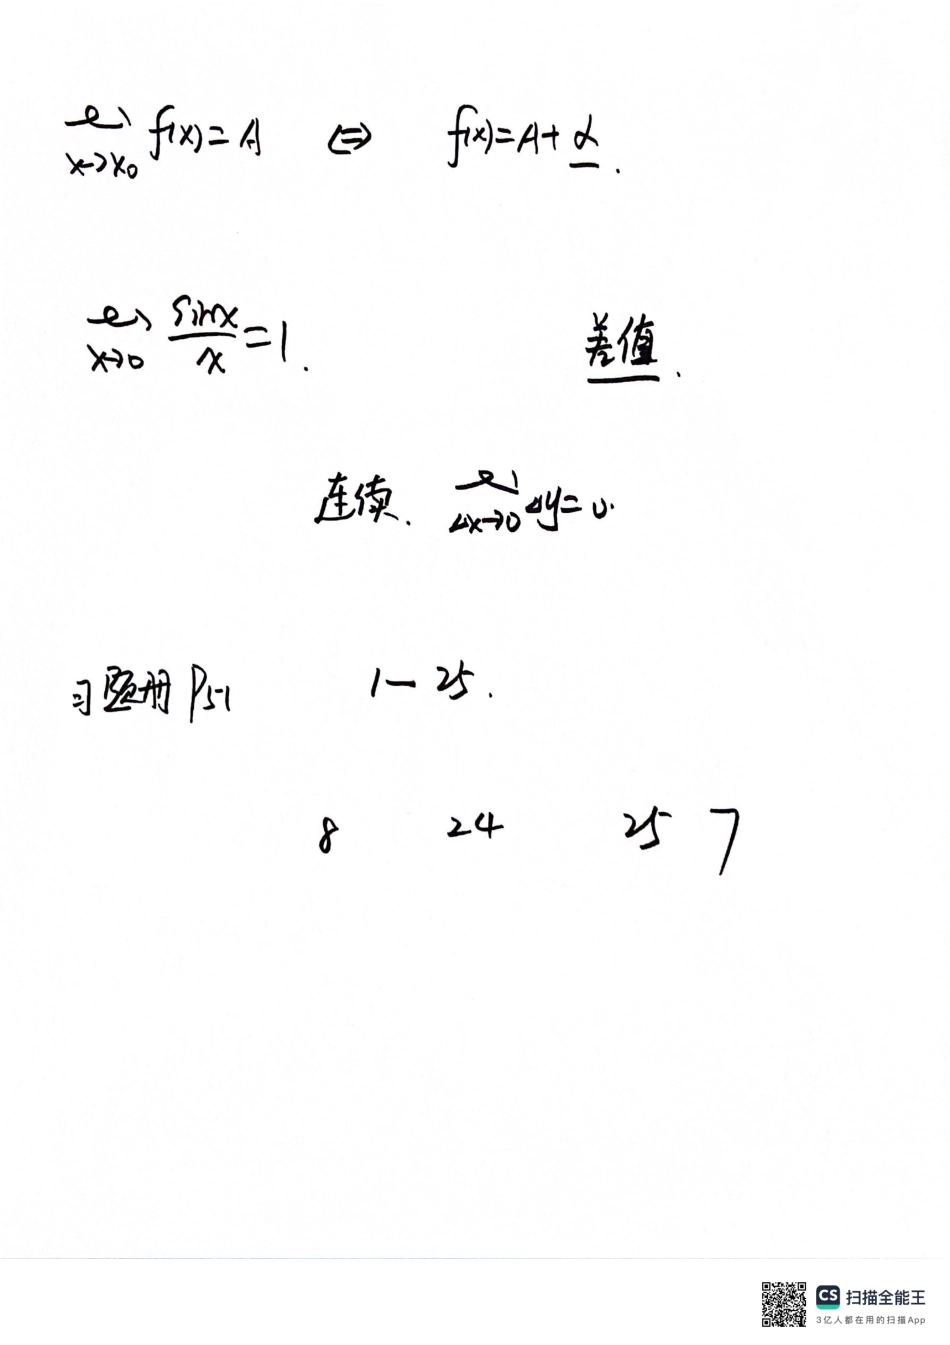 lim x→x₀ f(x)=A ⇔ f(x)=A+α.
lim x→0 sinx/x=1. 差值.
连续. lim Δx→0 Δy=0.
习题册 P51 1—25.
8 24 25 7
CS 扫描全能王
3亿人都在用的扫描App